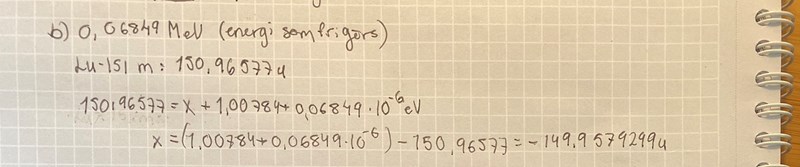 b) 0,06849 MeV (energi som frigörs)
Lu-151 m: 150,96577u
150,96577 = x + 1,00784 + 0,06849 · 10⁻⁶ eV
x = (1,00784 + 0,06849 · 10⁻⁶) - 150,96577 = -149,9579299u